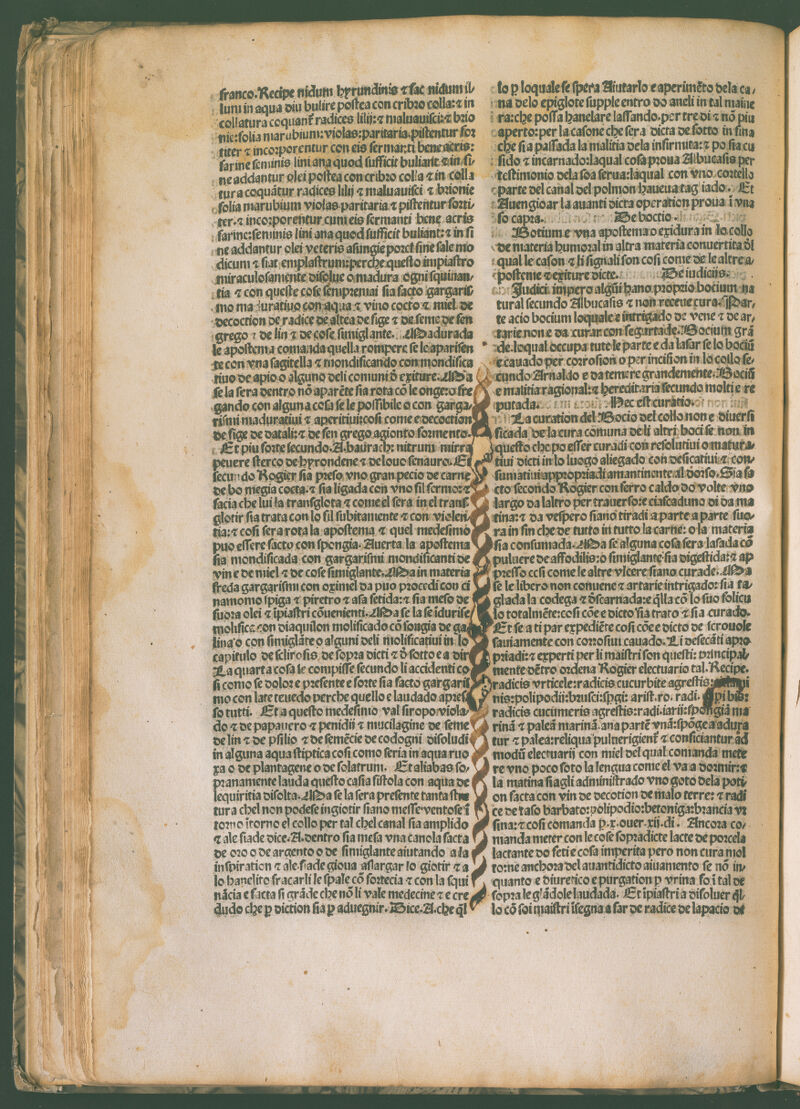 franco. Recipe nidum hyrundinis ⁊ fac nidum il-
lum in aqua diu bulire postea con cribro colla: ⁊ in
collatura coquant᷑ radices lilij: ⁊ maluauisci: ⁊ brio
nie: folia marubium: violas: paritaria. pistentur for
titer ⁊ incorporentur con eis fermanti bene acris:
farine seminis lini ana quod sufficit buliant ⁊ in fi-
ne addantur olei postea con cribro colla ⁊ in colla
tura coquãtur radices lilij ⁊ maluauisci ⁊ brionie
folia marubium violas paritaria ⁊ pistentur forti-
ter. ⁊ incorporentur cum eis fermanti bene acris
farine: seminis lini ana quod sufficit buliant: ⁊ in fi
ne addantur olei veteris asungie porci sine sale mo
dicum ⁊ fiat emplastrum: perche questo impiastro
miraculosamente disolue o madura ogni squinan-
tia ⁊ con queste cose sempremai sia facto gargaris
mo maturatiuo con aqua ⁊ vino cocto ⁊ miel de
decoction de radice de altea de fige ⁊ de seme de fen
grego ⁊ de lin ⁊ de cose simiglante. Madurada
le apostema comanda quella romperc se le apariscen
te con vna sagitella ⁊ mondificando con mondifica
tiuo de apio o alguno deli comuni õ exiture. Ma
se la sera dentro nõ aparẽte sia rota cõ le onge: o fre
gando con alguna cosa se le possibile o con garga-
rismi maduratiui ⁊ aperitiui: cosi come e decoction
de fige de datali: ⁊ de fen grego agionto formento.
Et piu forte secundo. A. baurach: nitrum mirra
peuere sterco de hyrondene ⁊ de louo senauro. Et
secundo Rogier sia preso vno gran pecio de carne
de bo megia cocta. ⁊ sia ligada con vno fil fermo: ⁊
facia che lui la transglota ⁊ come el sera in el trans
glotir sia trata con lo fil subitamente ⁊ con violen
tia: ⁊ cosi sera rota la apostema ⁊ quel medesimo
puo essere facto con spongia. Auerta la apostema
sia mondificada con gargarismi mondificanti de
vin e de miel ⁊ de cose simiglante. Ma in materia
freda gargarismi con oximel da puo procedi con ci
namomo spiga ⁊ piretro ⁊ asa fetida: ⁊ sia meso de
fuora olei ⁊ ĩpiastri cõuenienti. Ma se la se idurisce
molifica con diaquilon molificado cõ songia de ga
lina o con simiglãte o alguni deli molificatiui in lo
capitulo de sclirosis. de sopra dicti ⁊ õ sotto e a dir
La quarta cosa se compisse secundo li accidenti co
si como se dolor e presente e forte sia facto gargaris
mo con late teuedo perche quello e laudado apreso
so tutti. Et a questo medesimo val siropo viola-
do ⁊ de papauero ⁊ penidij ⁊ mucilagine de seme
de lin ⁊ de psilio ⁊ de semẽcie de codogni disoludi
in alguna aqua stiptica cosi como seria in aqua ruo
xa o de plantagene o de solatrum. Et aliabas so-
pranamente lauda questo casia fistola con aqua de
lequiritia disolta. Ma se la sera presente tanta stre
tura chel non podese ingiotir siano messe ventose ĩ
torno ĩtorno el collo per tal chel canal sia amplido
⁊ ale fiade dice. A. dentro sia mesa vna canola facta
de oro o de argento o de simiglante aiutando a la
inspiration ⁊ ale fiade gioua aslargar lo giotir ⁊ a
lo hanelito fracarli le spale cõ fortecia ⁊ con la squi
nãcia e facta si grãde che nõ li vale medecine ⁊ e cre
dudo che ꝑ diction sia ꝑ aduegnir. Dice. A. che q̃l
lo ꝑ loquale se spera Aiutarlo e aperimẽto dela ca-
na delo epiglote supple entro do aneli in tal maine
ra: che possa hanelare lassando. per tre di ⁊ nõ piu
aperto: per la casone che sera dicta de sotto in fina
che sia passada la malitia dela infirmita: ⁊ po sia cu
sido e incarnado: laqual cosa proua Albucasis per
testimonio dela soa serua: laqual con vno cortello
parte del canal del polmon haueua tagiado. Et
Auengioar la auanti dicta operation proua ĩ vna
so capra. De boctio.
Botium e vna apostema o exidura in lo collo
de materia humoral in altra materia conuertita õl
qual le cason ⁊ li signali son cosi come de le altre a-
posteme ⁊ exiture dicte. De iudiciis.
Judici impero algũi hano proprio bocium na
tural secundo Albucasis ⁊ non receue cura. Par-
te acio bocium loquale e intrigado de vene ⁊ de ar-
tarie non e da curar con segurtade. Bocium grã
de. loqual occupa tute le parte e da lasar se lo bociũ
e cauado per corrosion o per incision in lo collo se-
cundo Arnaldo e da temere grandemente. Bociũ
e malitia ragional: ⁊ hereditaria secundo molti e re
putada. Hec est curatio.
La curation del Bocio del collo non e diuersi
ficada de la cura comuna de li altri boci se non in
questo che po esser curadi con resolutiui o matura-
tiui dicti in lo luogo aliegado con desicatiui ⁊ con-
sumatiui appropriadi amantinente al dorso. Sia fa
cto secondo Rogier con ferro caldo do volte vno
largo da laltro per trauerso: ⁊ ciascaduno di da ma
tina: ⁊ da vespero siano tiradi a parte a parte fuo-
ra in fin che de tutto in tutto la carne: o la materia
sia consumada. Ma se alguna cosa sera lasada cõ
puluere de affodilio: o simiglante sia digestida: ⁊ ap
presso cosi come le altre vlcere siano curade. Ma
se le libero non conuene ⁊ artarie intrigado: sia ta-
glada la codega ⁊ õscarnada: e q̃lla cõ lo suo folicu
lo totalmẽte: cosi cõe e dicto sia trato ⁊ sia curado.
Et se a ti par expediẽte cosi cõe e dicto de scrouole
sauiamente con corrosiuo cauado. Li desecãti apro
priadi: ⁊ experti per li maistri son questi: principal-
mente dẽtro ordena Rogier electuario tal. Recipe.
radicis vrticele: radicis cucurbite agrestis:
nis: polipodij: brusci: spgi: arist. ro. radi.
radicis cucumeris agrestis: radi. iarij: spongia ma
rinã ⁊ paleã marinã. ana partẽ vnã: spõgea adura
tur ⁊ palea: reliqua puluerigient᷑ ⁊ conficiantur ad
modũ electuarij con miel del qual comanda mete
re vno poco soto la lengua come el va a dormir: ⁊
la matina siagli administrado vno goto dela poti-
on facta con vin de decotion de malo terre: ⁊ radi
ce de taso barbato: polipodio: betoniga: brancia vr
sina: ⁊ cosi comanda p. x. ouer. xij. di. Ancora co-
manda meter con le cose sopradicte lacte de porcela
lactante do feti e cosa imperita pero non cura mol
to: ne anchora del auantidicto aiuamento se nõ in-
quanto e diuretico e purgation p vrina fo ĩ tal de
sopra le glãdole laudada. Et ĩpiastri a disoluer q̃l-
lo cõ soi maistri ĩsegna a far de radice de lapacio de